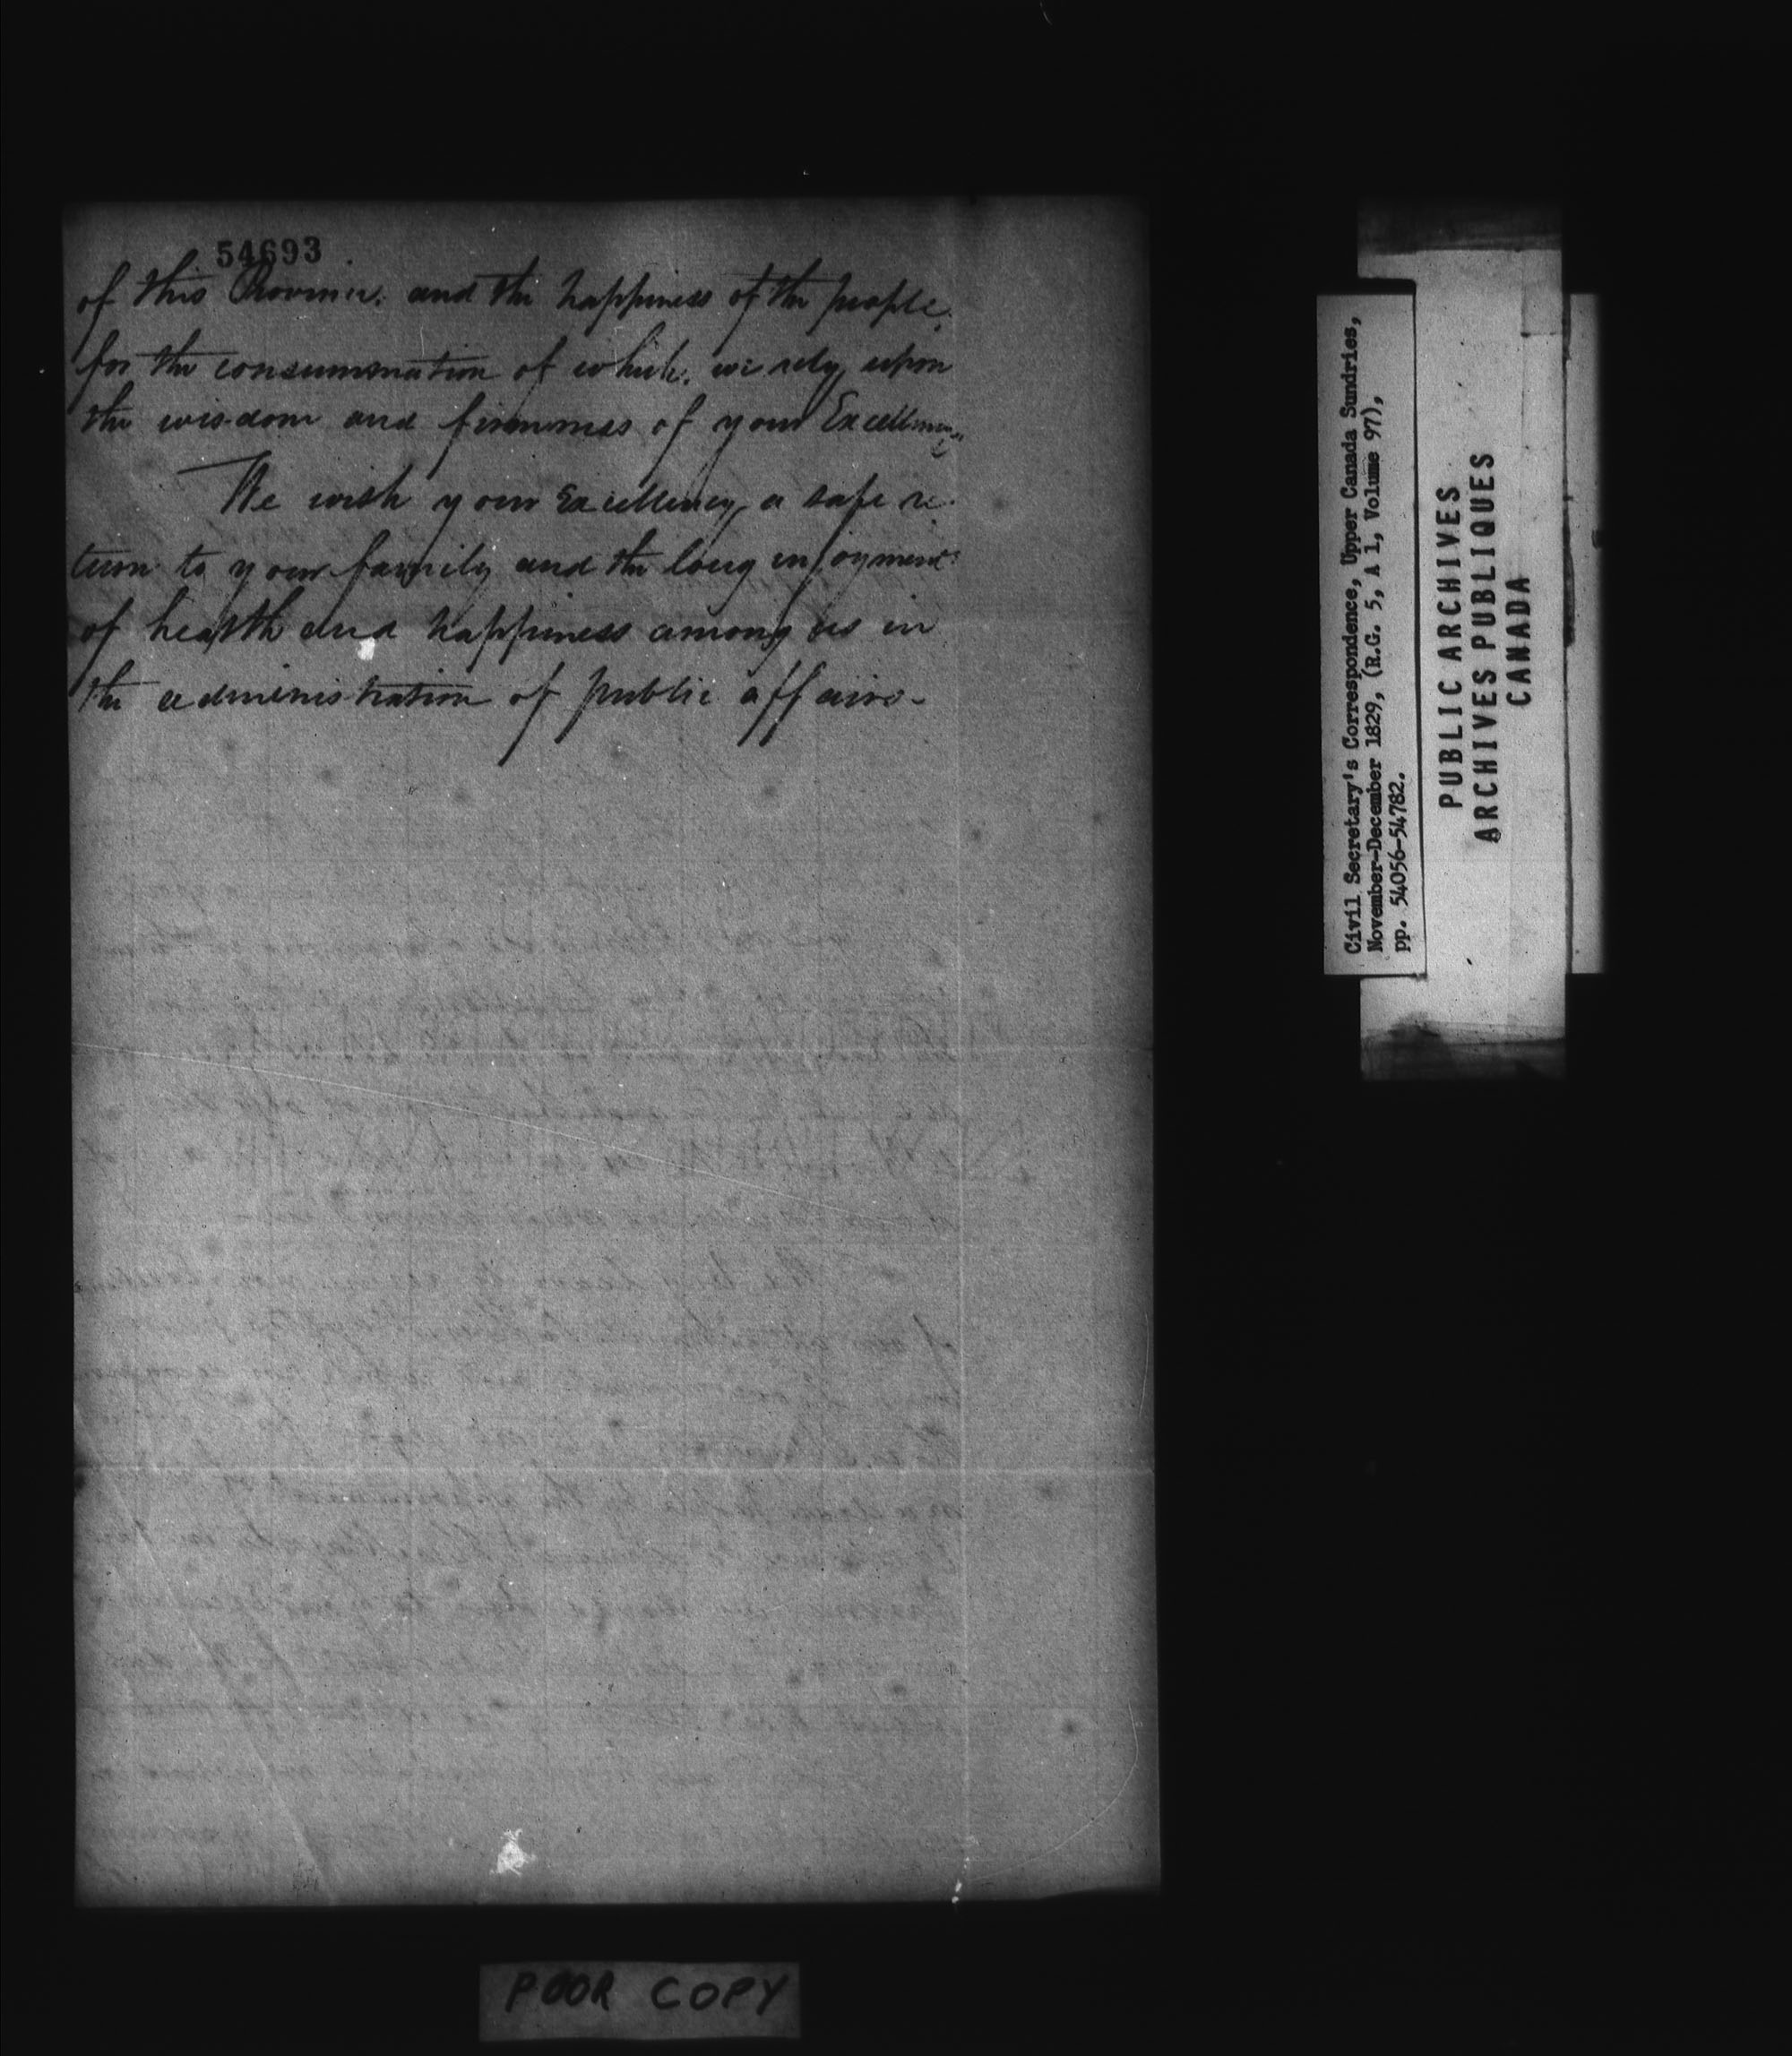 54693
of this Province. and the happiness of the people,
for the consummation of which. we rely upon
the wisdom and firmness of your Excellency
We wish your Excellency a safe re-
turn to your family and the long injoyment
of health and happiness among us in
the administration of public affairs-
Civil Secretary's Correspondence, Upper Canada Sundries,
November-December 1829, (R.G. 5, A 1, Volume 97),
pp. 54056-54782.
PUBLIC ARCHIVES
ARCHIVES PUBLIQUES
CANADA
POOR COPY